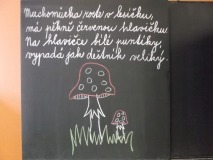 Muchomůrka roste v lesíčku,
má pěkně červenou hlavičku
Na hlavičce bílé puntíky,
vypadá jak deštník veliký.